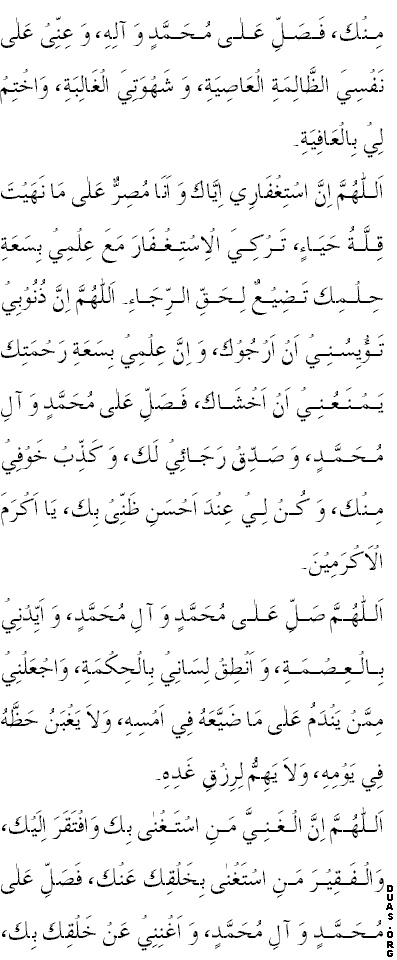 مِنْكَ، فَصَلِّ عَلٰى مُحَمَّدٍ وَ آلِهِ، وَ عِنِّيْ عَلٰى
نَفْسِيَ الظَّالِمَةِ الْعَاصِيَةِ، وَ شَهْوَتِيَ الْغَالِبَةِ، وَاخْتِمْ
لِيْ بِالْعَافِيَةِ۔
اَللّٰهُمَّ اِنَّ اسْتِغْفَارِي اِيَّاكَ وَ اَنَا مُصِرٌّ عَلٰى مَا نَهَيْتَ
قِلَّةُ حَيَاءٍ، تَرْكِيَ الْاِسْتِغْفَارَ مَعَ عِلْمِيْ بِسَعَةِ
حِلْمِكَ تَضِيْعٌ لِحَقِّ الرِّجَاءِ۔ اَللّٰهُمَّ اِنَّ ذُنُوْبِيْ
تَؤْيِسُنِيْ اَنْ اَرْجُوْكَ، وَ اِنَّ عِلْمِيْ بِسَعَةِ رَحْمَتِكَ
يَمْنَعُنِيْ اَنْ اَخْشَاكَ، فَصَلِّ عَلٰى مُحَمَّدٍ وَ آلِ
مُحَمَّدٍ، وَ صَدِّقْ رَجَائِيْ لَكَ، وَ كَذِّبْ خَوْفِيْ
مِنْكَ، وَ كُنْ لِيْ عِنْدَ اَحْسَنِ ظَنِّيْ بِكَ، يَا اَكْرَمَ
الْاَكْرَمِيْنَ۔
اَللّٰهُمَّ صَلِّ عَلٰى مُحَمَّدٍ وَ آلِ مُحَمَّدٍ، وَ اَيِّدْنِيْ
بِالْعِصْمَةِ، وَ اَنْطِقْ لِسَانِيْ بِالْحِكْمَةِ، وَاجْعَلْنِيْ
مِمَّنْ يَنْدَمُ عَلٰى مَا ضَيَّعَهُ فِي اَمْسِهِ، وَلاَ يَغْبَنُ حَظَّهُ
فِي يَوْمِهِ، وَلاَ يَهِمُّ لِرِزْقِ غَدِهِ۔
اَللّٰهُمَّ اِنَّ الْغَنِيَّ مَنِ اسْتَغْنٰى بِكَ وَافْتَقَرَ اِلَيْكَ،
وَالْفَقِيْرَ مَنِ اسْتَغْنٰى بِخَلْقِكَ عَنْكَ، فَصَلِّ عَلٰى
مُحَمَّدٍ وَ آلِ مُحَمَّدٍ، وَ اَغْنِنِيْ عَنْ خَلْقِكَ بِكَ،
DUAS.ORG